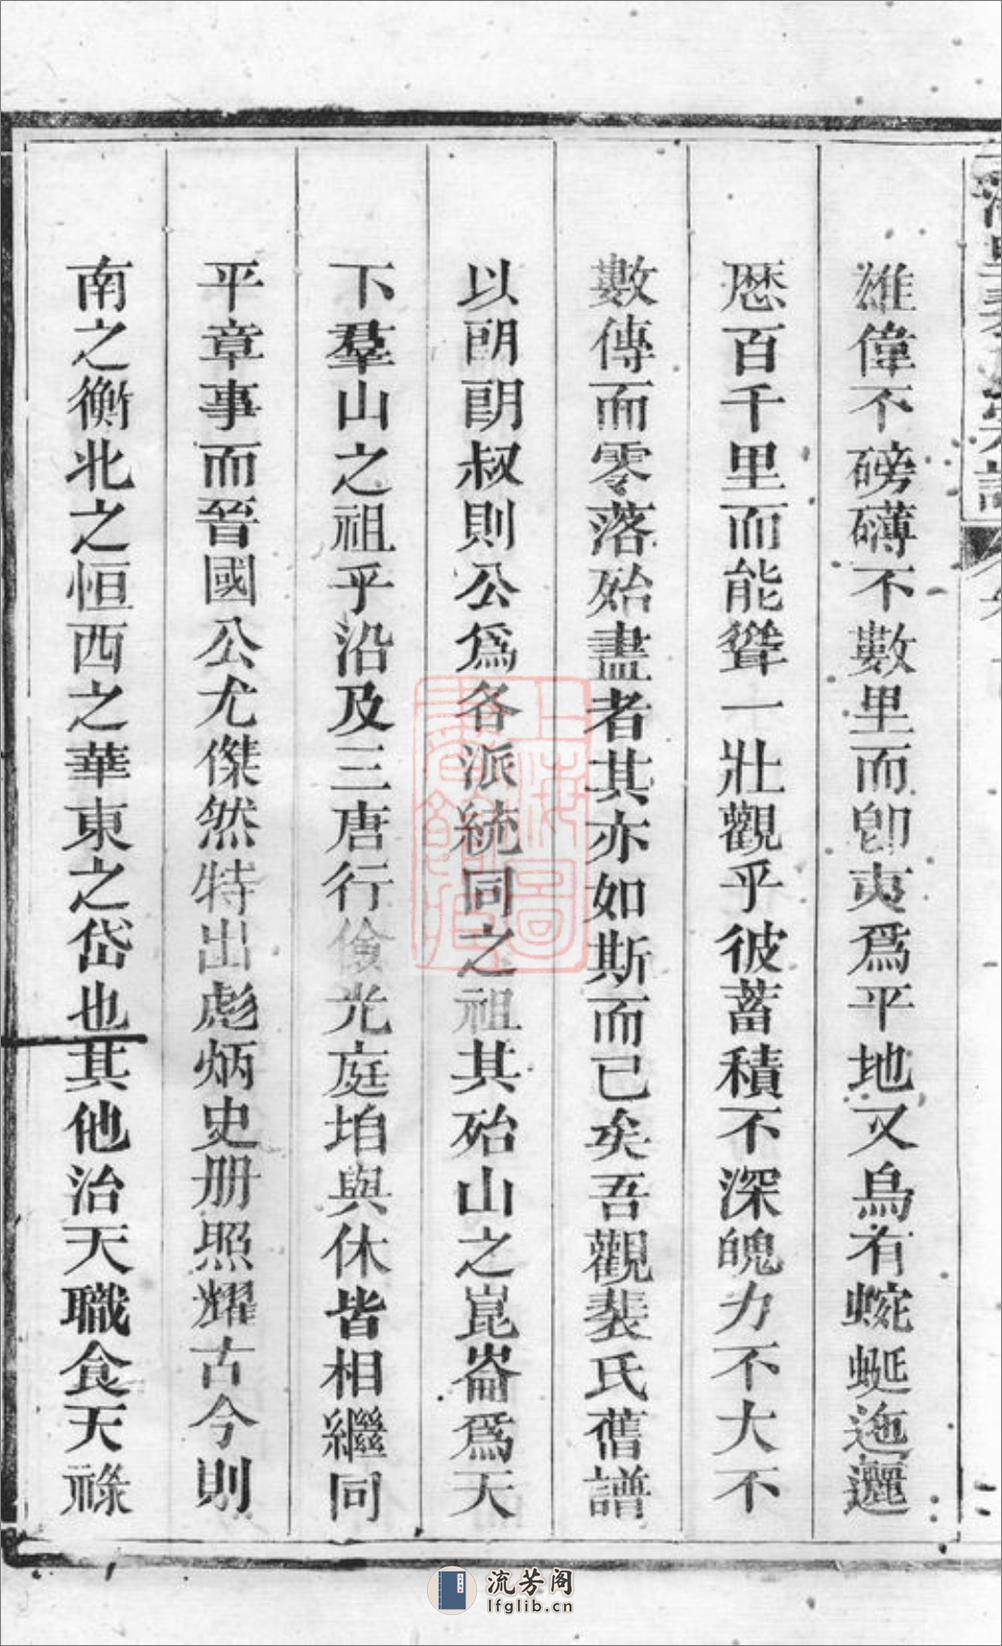 雄偉不磅礴不數里而卽夷爲平地又烏有蜿蜒迤邐
厯百千里而能聳一壯觀乎彼蓄積不深魄力不大不
數傳而零落殆盡者其亦如斯而已矣吾觀裴氏舊譜
以朗朗叔則公爲各派統同之祖其殆山之崑崙爲天
下羣山之祖乎沿及三唐行儉光庭垍與休皆相繼同
平章事而晉國公尤傑然特出彪炳史册照耀古今則
南之衡北之恒西之華東之岱也其他治天職食天祿
上海圖書館藏
流芳阁
lfglib.cn